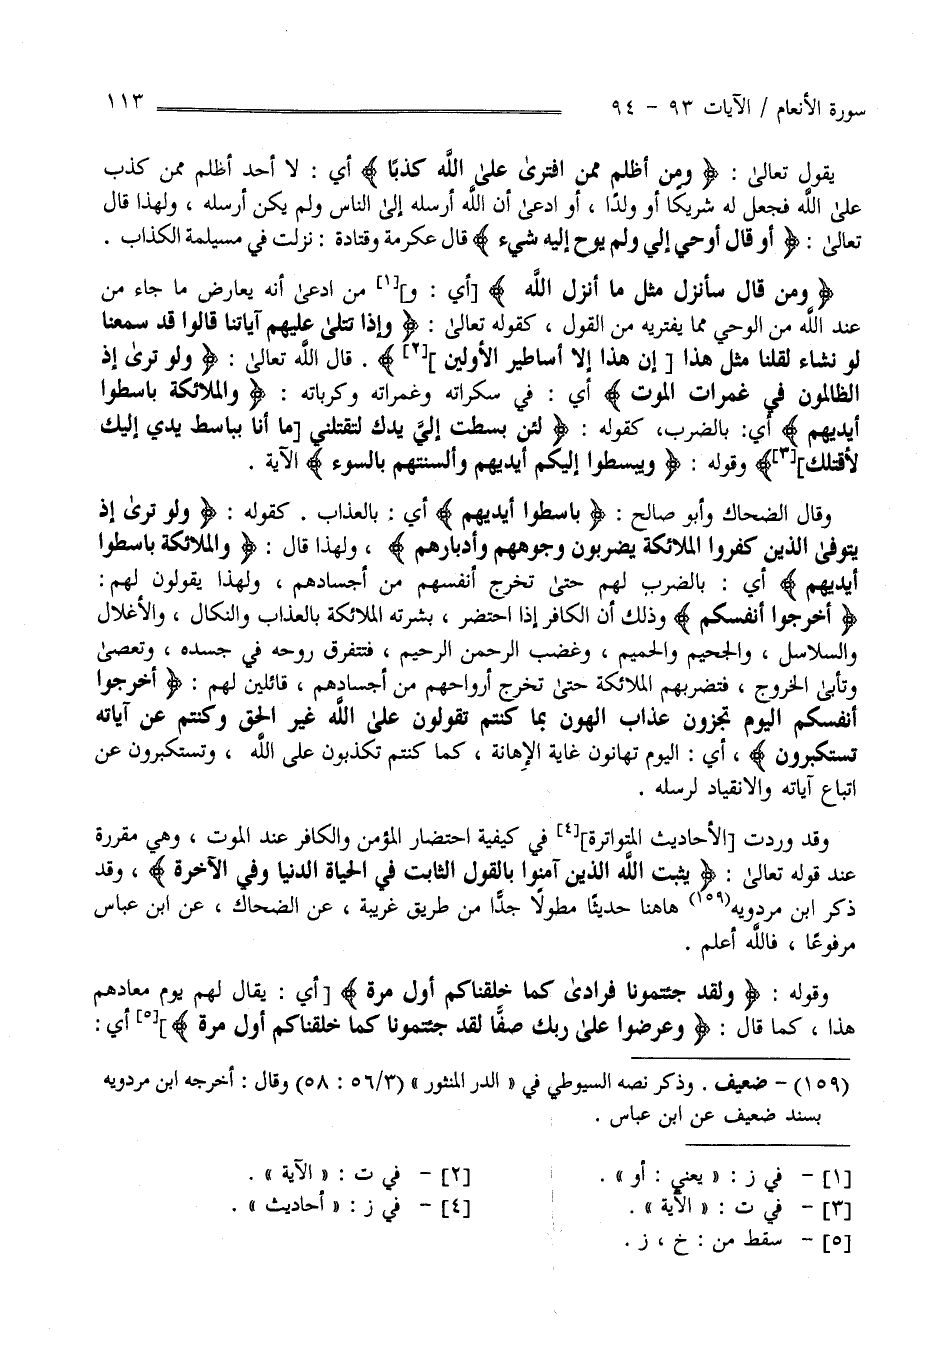 سورة الأنعام / الآيات ٩٣ - ٩٤ ١١٣
يقول تعالىٰ : ﴿ ومن أظلم ممن افترىٰ علىٰ اللَّه كذبًا ﴾ أي : لا أحد أظلم ممن كذب
علىٰ اللَّه فجعل له شريكًا أو ولدًا ، أو ادعىٰ أن اللَّه أرسله إلىٰ الناس ولم يكن أرسله ، ولهذا قال
تعالىٰ : ﴿ أو قال أوحي إلي ولم يوح إليه شيء ﴾ قال عكرمة وقتادة : نزلت في مسيلمة الكذاب .
﴿ ومن قال سأنزل مثل ما أنزل اللَّه ﴾ [أي : و][١] من ادعىٰ أنه يعارض ما جاء من
عند اللَّه من الوحي مما يفتريه من القول ، كقوله تعالىٰ : ﴿ وإذا تتلىٰ عليهم آياتنا قالوا قد سمعنا
لو نشاء لقلنا مثل هذا [ إن هذا إلا أساطير الأولين ][٢] ﴾ . قال اللَّه تعالىٰ : ﴿ ولو ترىٰ إذ
الظالمون في غمرات الموت ﴾ أي : في سكراته وغمراته وكرباته : ﴿ والملائكة باسطوا
أيديهم ﴾ أي: بالضرب، كقوله : ﴿ لئن بسطت إليَّ يدك لتقتلني [ما أنا بباسط يدي إليك
لأقتلك][٣]﴾ وقوله : ﴿ ويبسطوا إليكم أيديهم وألسنتهم بالسوء ﴾ الآية .
وقال الضحاك وأبو صالح : ﴿ باسطوا أيديهم ﴾ أي : بالعذاب . كقوله : ﴿ ولو ترىٰ إذ
يتوفىٰ الذين كفروا الملائكة يضربون وجوههم وأدبارهم ﴾ ، ولهذا قال : ﴿ والملائكة باسطوا
أيديهم ﴾ أي : بالضرب لهم حتىٰ تخرج أنفسهم من أجسادهم ، ولهذا يقولون لهم:
﴿ أخرجوا أنفسكم ﴾ وذلك أن الكافر إذا احتضر ، بشرته الملائكة بالعذاب والنكال ، والأغلال
والسلاسل ، والجحيم والحميم ، وغضب الرحمن الرحيم ، فتتفرق روحه في جسده ، وتعصىٰ
وتأبىٰ الخروج ، فتضربهم الملائكة حتىٰ تخرج أرواحهم من أجسادهم ، قائلين لهم : ﴿ أخرجوا
أنفسكم اليوم تجزون عذاب الهون بما كنتم تقولون علىٰ اللَّه غير الحق وكنتم عن آياته
تستكبرون ﴾ ، أي : اليوم تهانون غاية الإهانة ، كما كنتم تكذبون على اللَّه ، وتستكبرون عن
اتباع آياته والانقياد لرسله .
وقد وردت [الأحاديث المتواترة][٤] في كيفية احتضار المؤمن والكافر عند الموت ، وهي مقررة
عند قوله تعالىٰ : ﴿ يثبت اللَّه الذين آمنوا بالقول الثابت في الحياة الدنيا وفي الآخرة ﴾ ، وقد
ذكر ابن مردويه(١٥٩) هاهنا حديثًا مطولًا جدًّا من طريق غريبة ، عن الضحاك ، عن ابن عباس
مرفوعًا ، فاللَّه أعلم .
وقوله : ﴿ ولقد جئتمونا فرادىٰ كما خلقناكم أول مرة ﴾ [أي : يقال لهم يوم معادهم
هذا ، كما قال : ﴿ وعرضوا علىٰ ربك صفًّا لقد جئتمونا كما خلقناكم أول مرة ﴾][٥] أي :
(١٥٩) - ضعيف . وذكر نصه السيوطي في « الدر المنثور » (٥٦/٣ : ٥٨) وقال : أخرجه ابن مردويه
بسند ضعيف عن ابن عباس .
[١] - في ز : « يعني : أو » . [٢] - في ت : « الآية » .
[٣] - في ت : « الآية » . [٤] - في ز : « أحاديث » .
[٥] - سقط من : خ ، ز .